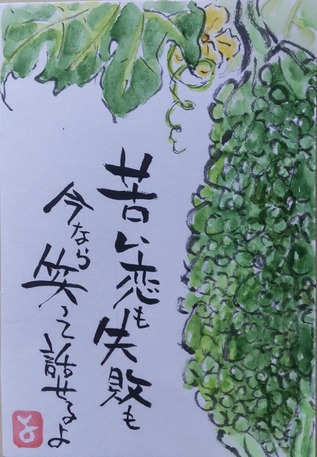 苦い恋も
失敗も
今なら
笑って話せるよ